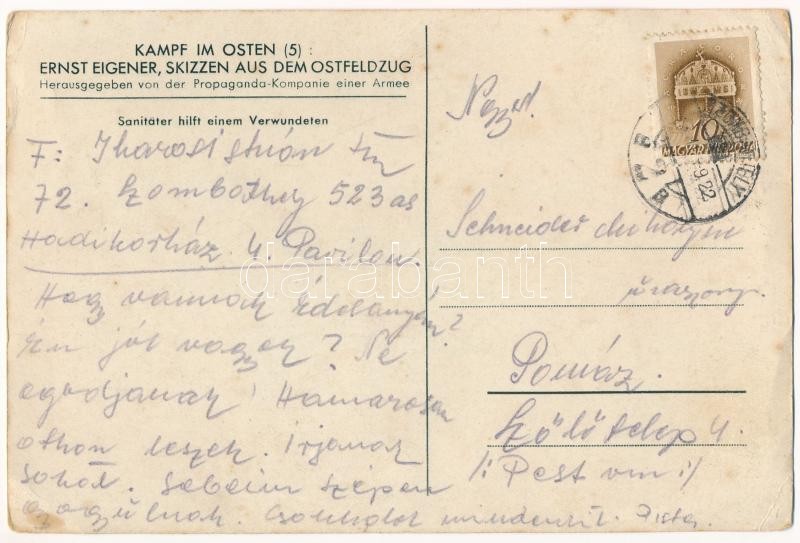 KAMPF IM OSTEN (5) :
ERNST EIGENER, SKIZZEN AUS DEM OSTFELDZUG
Herausgegeben von der Propaganda-Kompanie einer Armee
Sanitäter hilft einem Verwundeten
F: Iharosi István
72. Szombathely 523 as
Hadikorház 4. Pavilon.
Hogy vannak Édesanyám?
Én jól vagyok? Ne
agódjanak! Hamarosan
othon leszek. Irjanak
sokat. Sebeim szépen
gyogyulnak. Csokolok mindenkit. Pista.
Nagys.
Schneider Mihályné
úrasszony.
Pomáz.
Szőlőtelep 4.
/: Pest vm :/
10
MAGYAR POSTA
SZOMBATHELY
9.22
darabanth